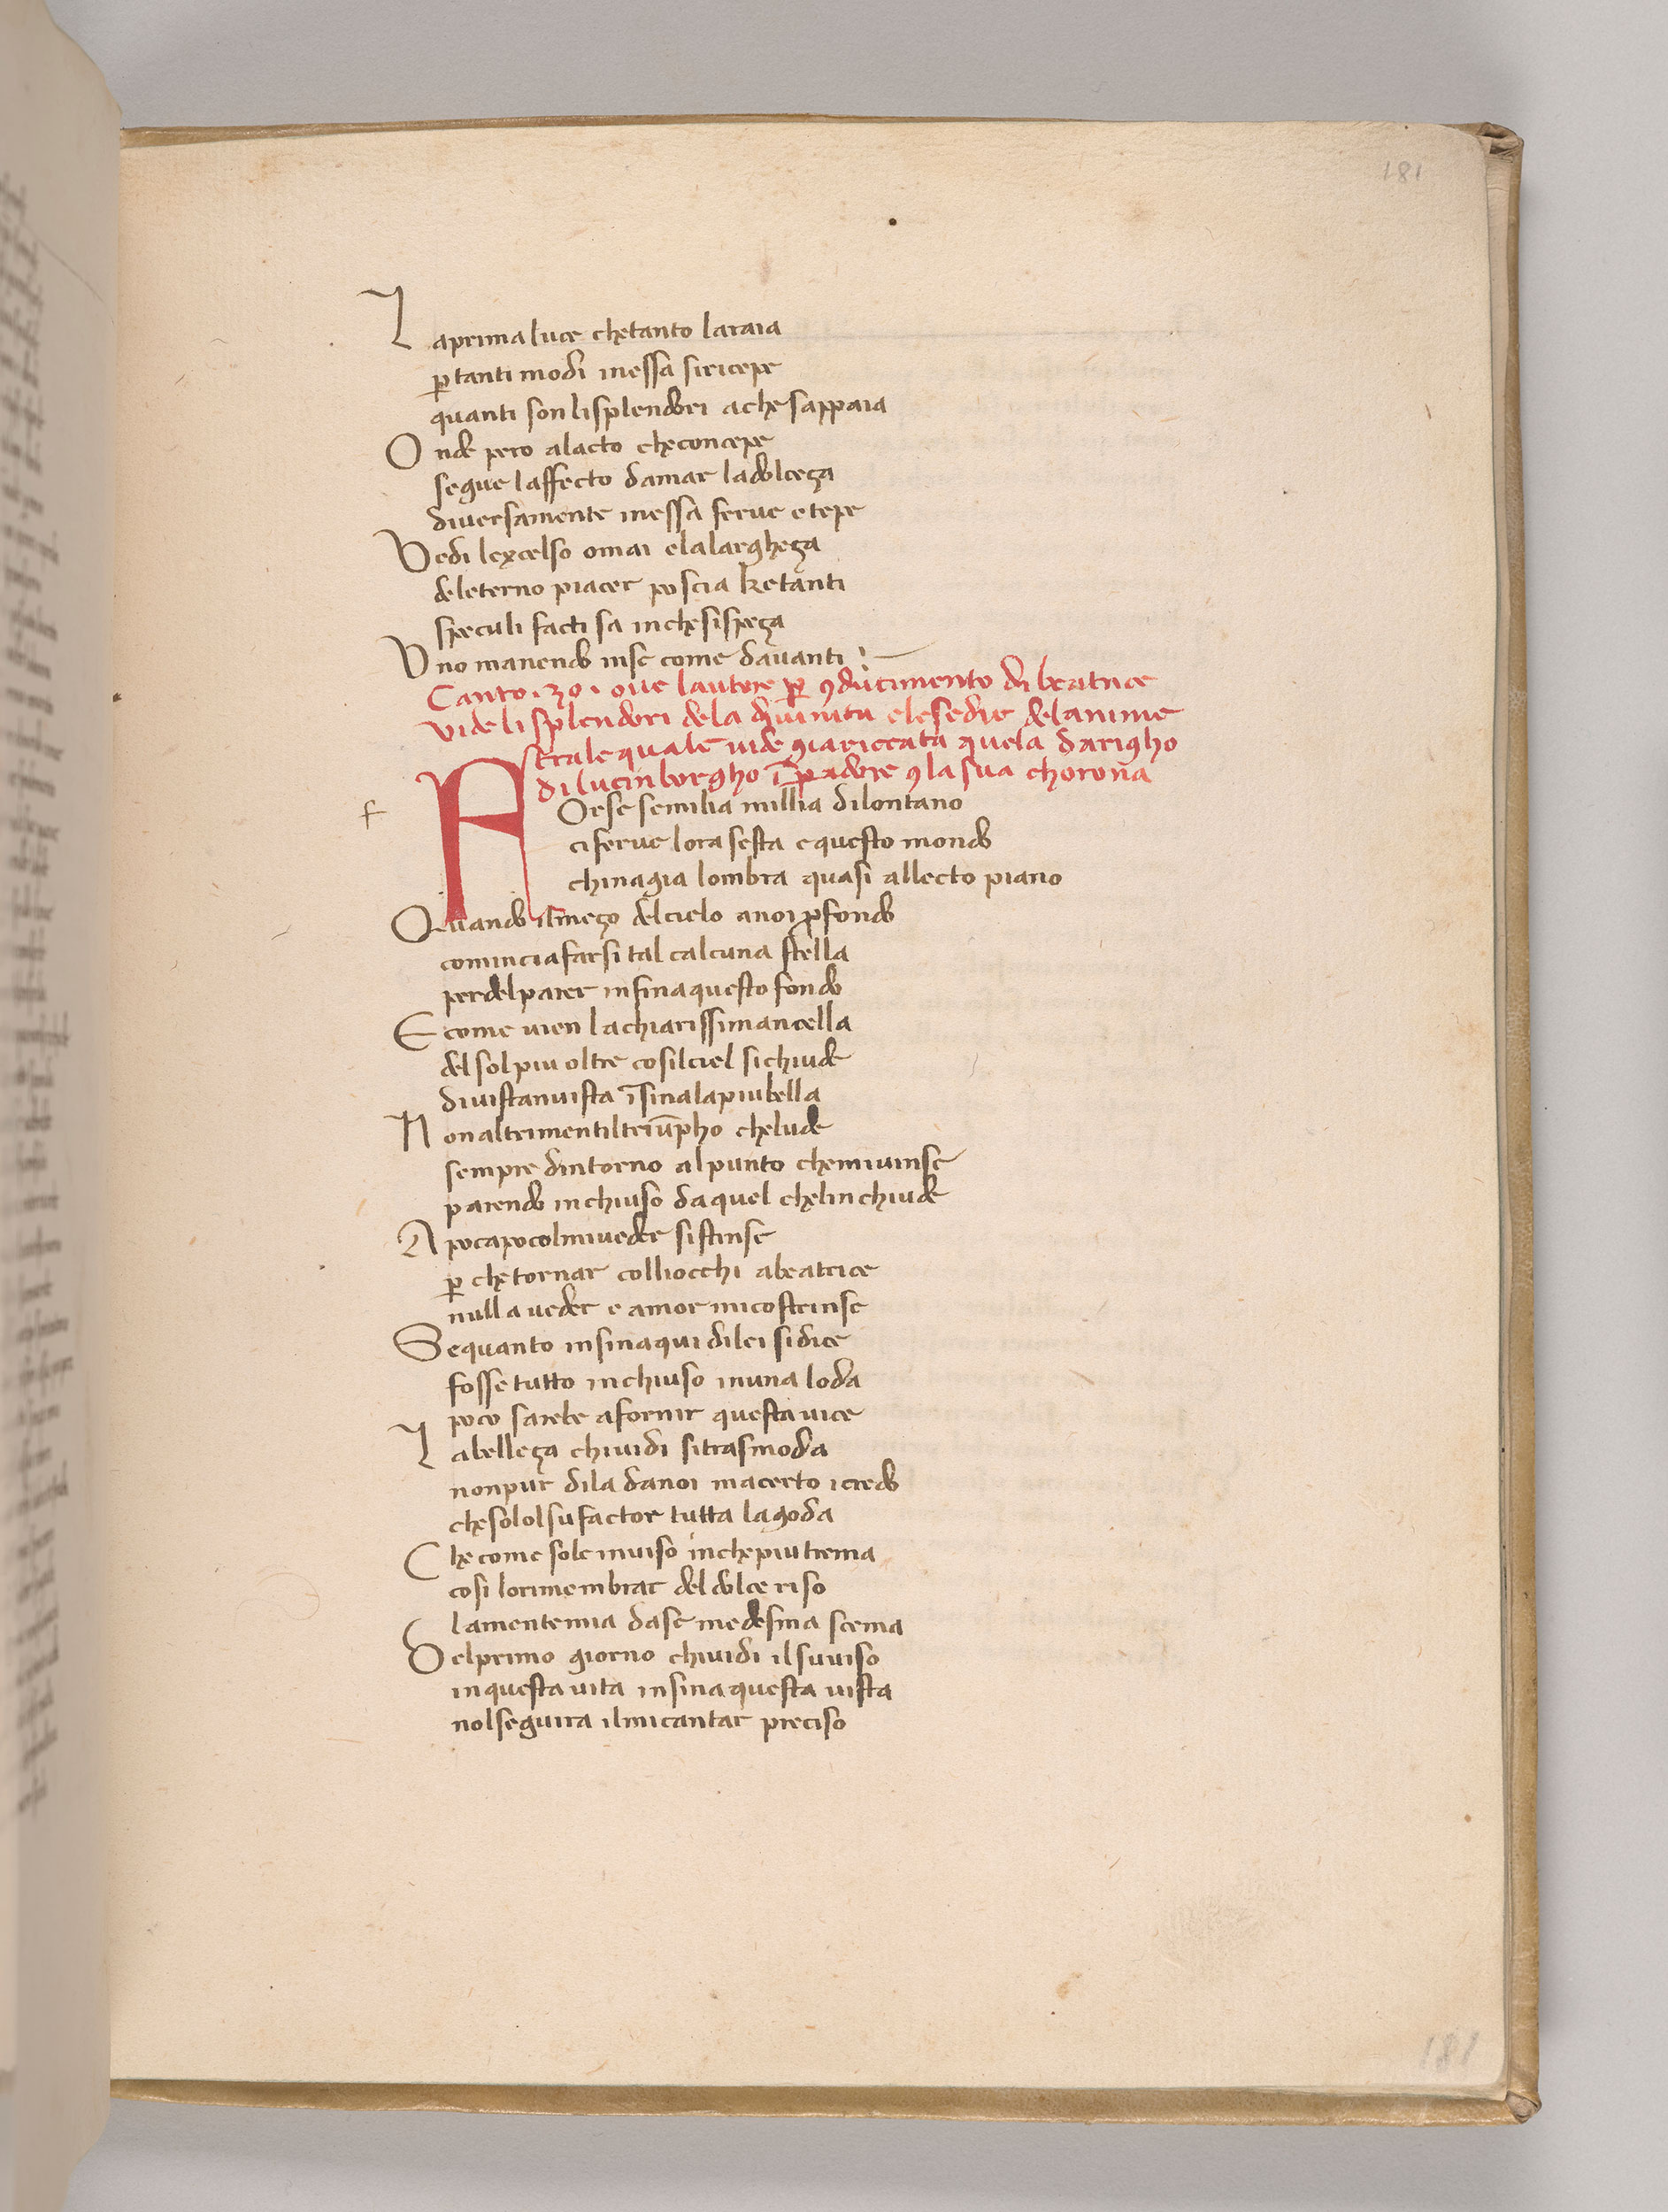 181
L aprima luce chetanto laraia
ꝑ tanti modi inessa siricepe
quanti son lisplendori a che sappaia
O nde pero alacto checoncepe
segue laffecto damar ladolceça
diuersamente inessa ferue e tepe
V edi lexcelso omai e la largheça
deleterno piacer poscia ke tanti
speculi facti sa in che si speça
V no manendo inse come dauanti :
Canto . 30 . oue lautore ꝑ ꝯducimento di beatrice
vide li splendori dela diuinita e le sedie delanime
Per le quale uide gia riccata quela darigho
di lucinborgho īꝑadore ꝯ la sua chorona
F
f
Orse semilia millia dilontano
ci ferue lora sesta e questo mondo
china gia lombra quasi allecto piano
Q uando ilmeço delcielo anoi ꝓfondo
comincia farsi tal calcuna stella
perdel parer insina questo fondo
E come uien lachiarissimancella
del sol piu oltre cosilciel sichiude
diuistanuista īsinalapiubella
N onaltrimentiltriūpho chelude
sempre dintorno al punto chemiuinse
parendo inchiuso da quel chelinchiude
A pocapocolmiueder sistinse
ꝑ che tornar colliocchi abeatrice
nulla ueder e amor micostrinse
S equanto insinaqui dilei sidice
fosse tutto inchiuso inuna loda
poco sarebe afornir questa uice
L abelleça chiuidi sitrasmoda
nonpur dila danoi macerto icredo
chesololsufactor tutta lagoda
C he come sole inuiso inchepiutrema
cosi lorimembrar del dolce riso
lamentemia dase medesma scema
D alprimo giorno chiuidi ilsuuiso
inquesta uita insina questa uista
nolseguira ilmicantar preciso
181